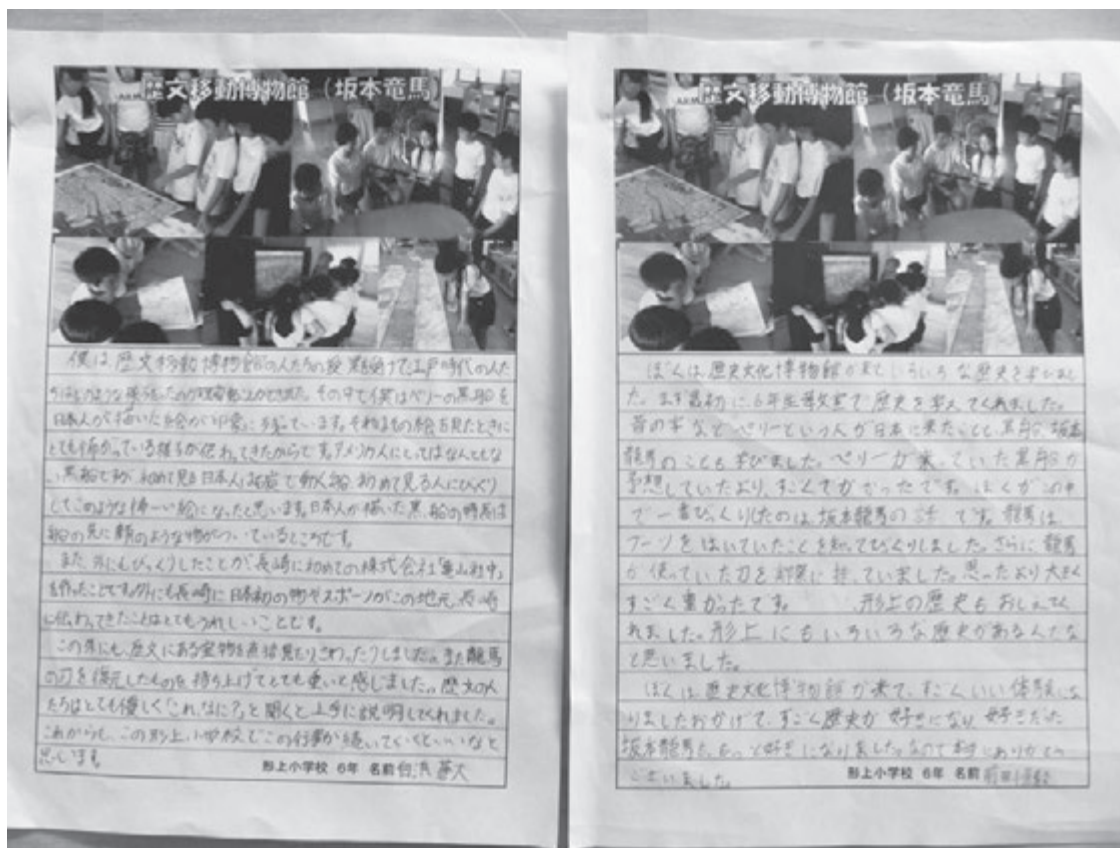 歴文移動博物館(坂本竜馬
僕は歴文移動博物館の人たちの授業を受けて江戸時代の人た
その中でも僕はペリーの黒船を
日本人が描いた絵が印象に残っています。それはその絵を見たときに
とても怖がっている様子が伝わってきたからです。アメリカ人にとってはなんともな
い黒船ですが、初めて見る日本人は
してこのような怖ーい絵になったと思います。日本人が描いた黒船の特長は
船の先に顔のような物がついているところです。
また、外にもびっくりしたことが長崎に初めての株式会社「亀山社中」
を作ったことです。外にも長崎に日本初の物やスポーツがこの地元、長崎
に伝わってきたことはとてもうれしいことです。
この外にも、歴文にある宝物を直接見たりさわったりしました。また龍馬
の刀を復元したものを持ち上げてとても重いと感じました。歴文の人
たちはとても優しく「これなに?」と聞くと上手に説明してくれました。
これからも、この形上小学校でこの行事が続いていくといいなと
思います。
形上小学校 6年 名前
歴文移動博物館(坂本竜馬
ぼくは、歴史文化博物館が来ていろいろな歴史を学びまし
た。まず最初に、6年生教室で歴史を教えてくれました。
昔の字など ペリーという人が日本に来たことと、黒船、坂本
龍馬のことも学びました。ペリーが乗っていた黒船が
予想していたより、すごくでかかったです。ぼくがこの中
で一番びっくりしたのは、坂本龍馬の話です。龍馬は、
ブーツをはいていたことを知ってびっくりしました。さらに龍馬
が使っていた刀を実際に持っていました。思ったより大きく
すごく重かったです。 形上の歴史もおしえてく
れました。形上にもいろいろな歴史があるんだな
と思いました。
ぼくは、歴史文化博物館が来て、すごくいい体験にな
りましたおかげで、すごく歴史が好きになり、好きだった
坂本龍馬も、もっと好きになりました。なので本当にありがとう
ございました。
形上小学校 6年 名前